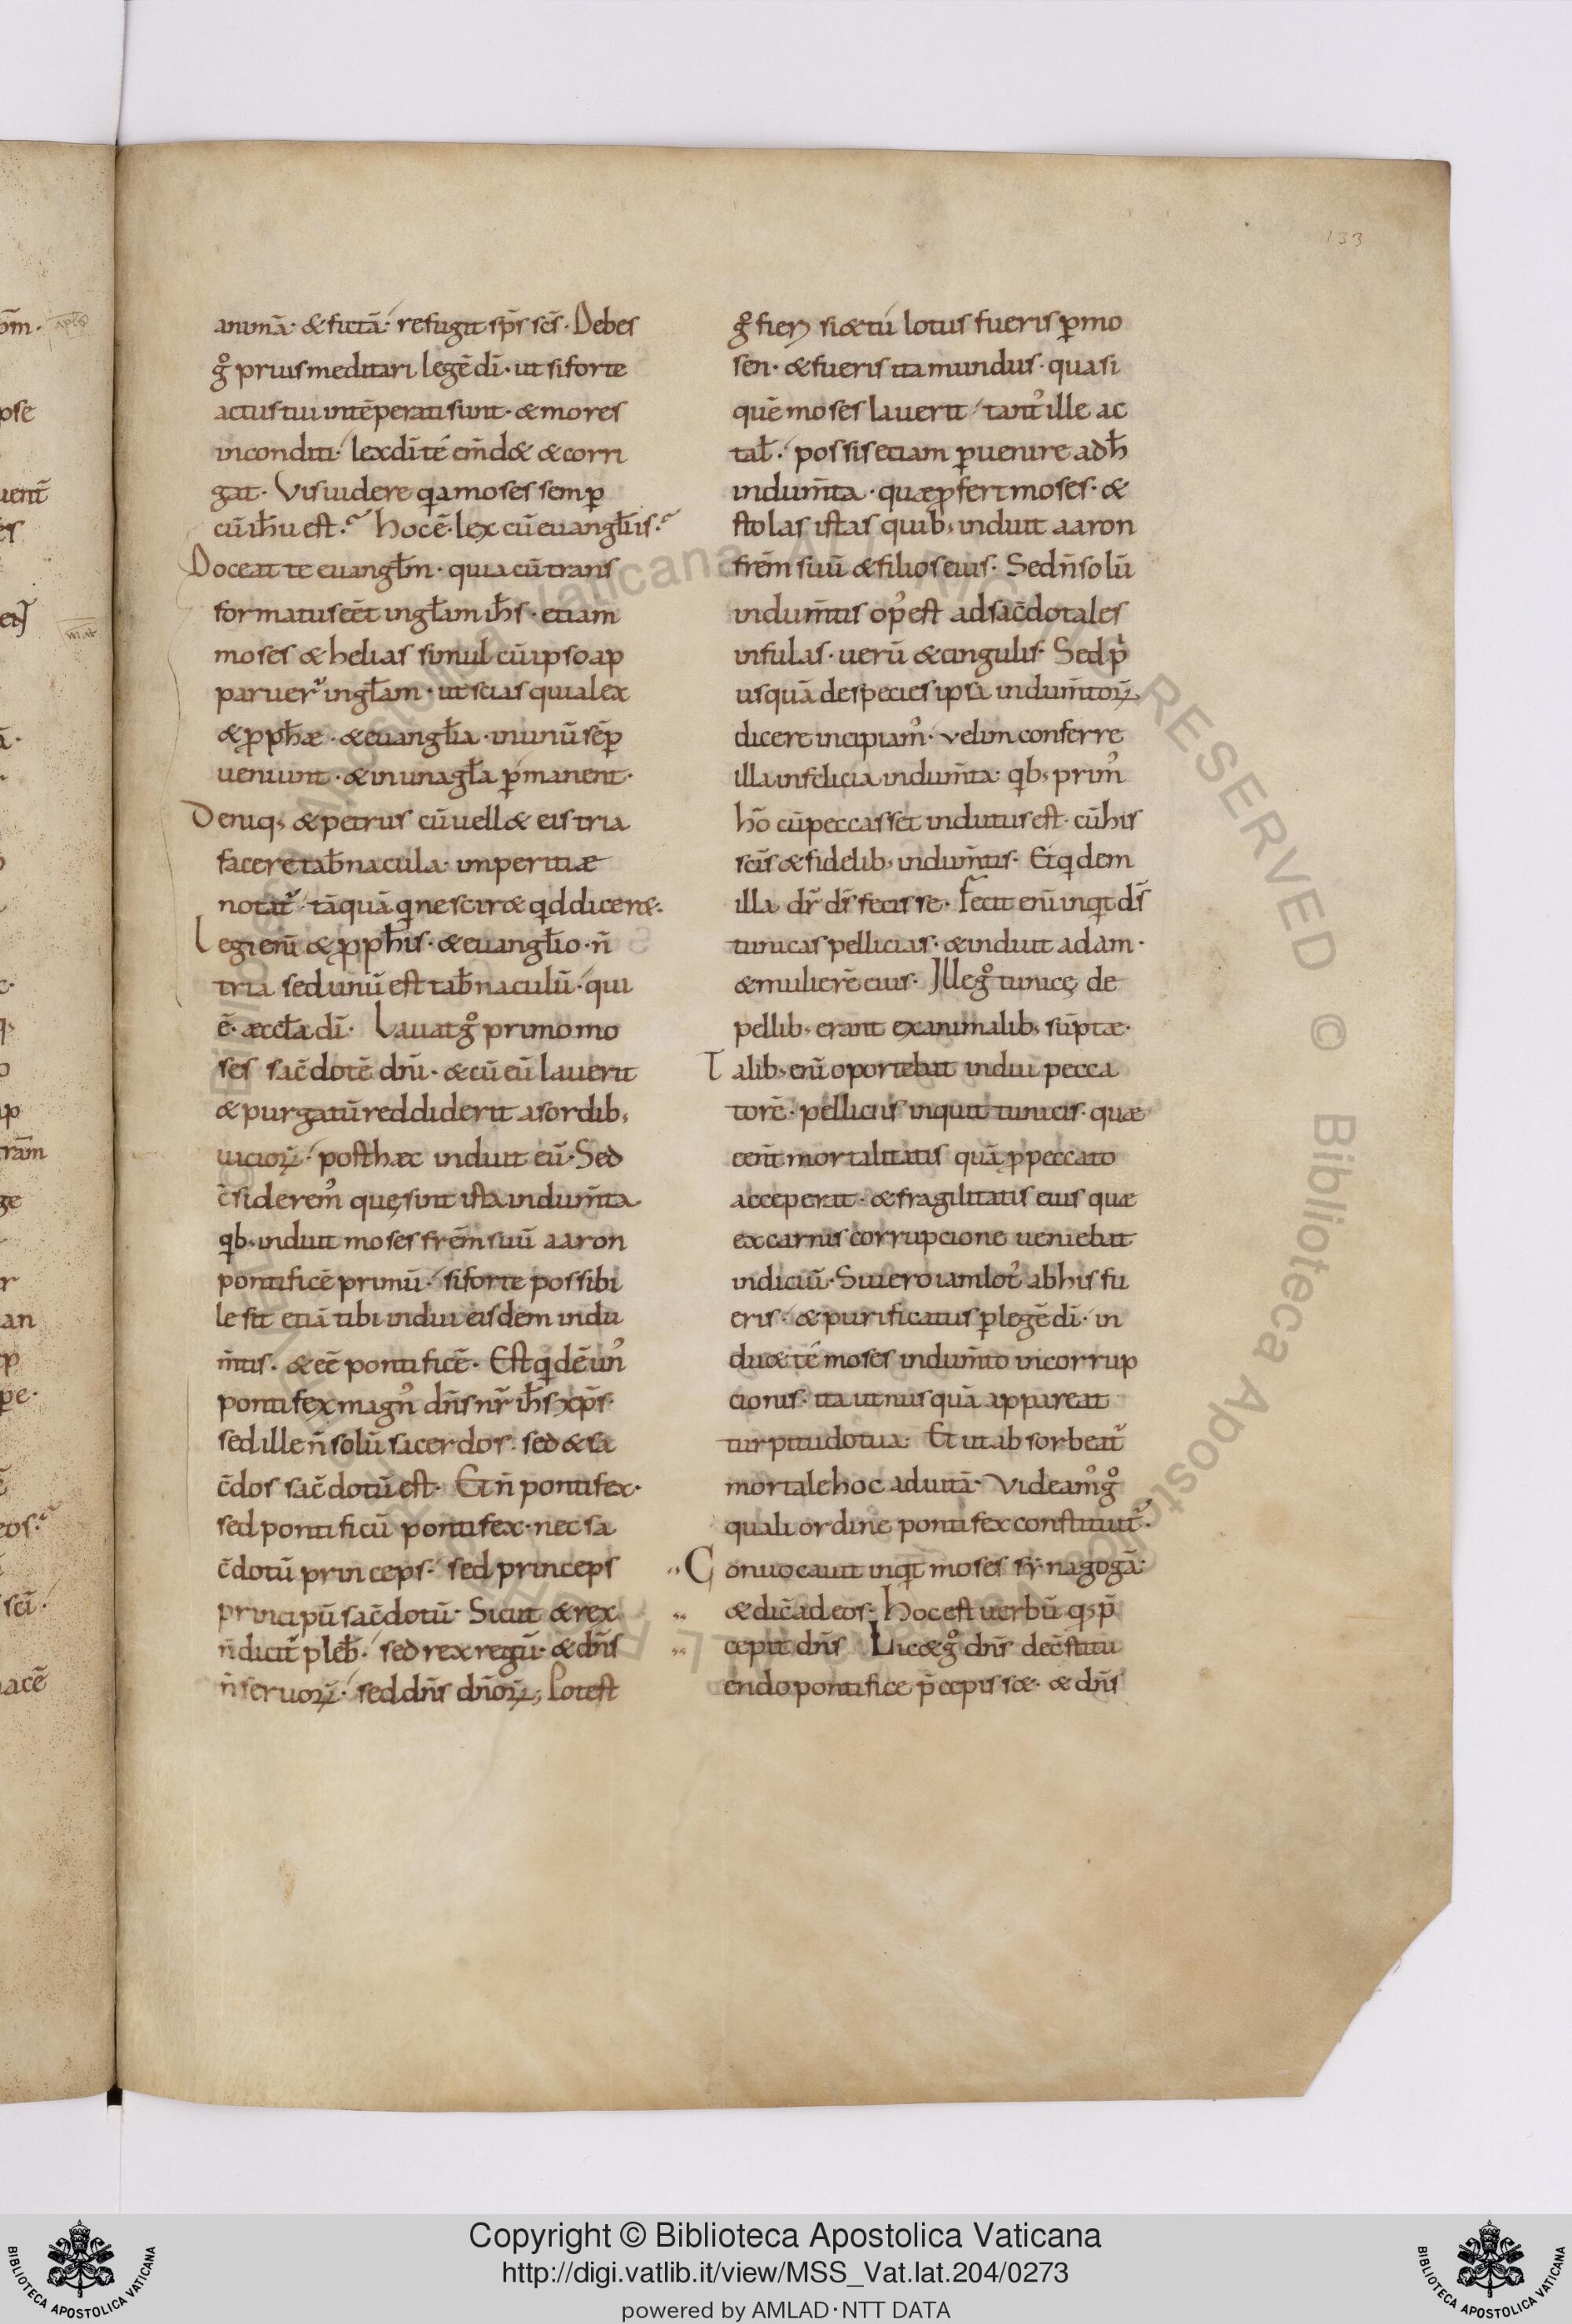 133
animā· & fictā·́ refugit sp̄s sc̄s· Debes
gͦ prius meditari legē dī· ut si forte
actus tui intēperati sunt· & mores
inconditi·́ lex dī té em̄d& & corri
gat· Vis uidere qa moses semꝑ
cū ih̄u est·̃ hoc ē· lex cū euangłiis·̃
Doceat te euangłm· quia cū trans
formatus eēt in głam ih̄s· etiam
moses & helias simul cū ipso ap
paruer̃ in głam· ut scias quia lex
& ꝓph̄æ· & euangłia· in unū sēꝑ
ueniunt· & in una gła ꝑmanent·
Deniq; & petrus cū uell& eis tria
facere tab̄nacula· imperitiæ
notat̃́ tāquā qui nescir& qd dicer&·
Legi enī & ꝓph̄is· & euangłio· n̄
tria sed unū est tab̄naculū·́ qui
ē· æccła dī· Lauat gͦ primo mo
ses sac̄dotē dnī· & cū eū lauerit
& purgatū reddiderit a sordib;
uicioꝝ·́ post hæc induit eū· Sed
c̄siderem᾿ quę sint ista indum̄ta
qb; induit moses fr̄em suū aaron
pontificē primū·́ si forte possibi
le sit etiā tibi indui eisdem indu
m̄tis· & eē pontificē· Est qdē un᾿
pontifex magn᾿ dn̄s nr̄ ih̄s xp̄s·
sed ille n̄ solū sacerdos· sed & sa
c̄dos sac̄dotū est· Et n̄ pontifex·
sed pontificū pontifex· nec sa
c̄dotū princeps·́ sed princeps
principū sac̄dotū· Sicut & rex
n̄ dicit̃ pleb̄·́ sed rex regū· & dn̄s
n̄ seruoꝝ·́ sed dn̄s dn̄oꝝ; Potest
gͦ fieri si & tú lotus fueris ꝑ mo
sen· & fueris ita mundus· quasi
quē moses lauerit·́ tant᾿ ille ac
tał·́ possis etiam ꝑuenire ad h̄
indum̄ta· quæ ꝓfert moses· &
stolas istas quib; induit aaron
fr̄em suū & filios eius· Sed n̄ solū
indum̄tis op᾿ est ad sac̄dotales
infulas· uerū & cingulis· Sed p
usquā de specie sipsa indum̄toꝝ
dicere incipiam᾿· velim conferre
illa infelicia indum̄ta· qb; prim᾿
hō cū peccass&́ indutus est· cū his
sc̄is & fidelib; indum̄tis· Et qdem
illa dr̄ ds̄ fecisse· Fecit enī inqt ds̄
tunicas pellicias· & induit adam·
& mulierē eius· Ille gͦ tunicę de
pellib; erant ex animalib; sūptæ·
Talib; enī oportebat indui pecca
torē· pelliciis inquit tunicis· quæ
eent̄ mortalitatis quā ꝓ peccato
acceperat· & fragilitatis eius quæ
ex carnis corrupcione ueniebat
indiciū· Si uero iam lot᾿ ab his fu
eris·́ & purificatus ꝑ legē dī· in
du& té moses indum̄to incorrup
cionis· ita ut nusquā appareat
turpitudo tua· Et ut absorbeat̃
mortale hoc a duitā· Videam᾿ gͦ
quali ordine pontifex constituit̃·
Conuocauit inqt moses synagogā·
& dic̄ ad eos· Hoc est uerbū q; p̄
cepit dn̄s Lic& gͦ dn̄s de c̄stitu
endo pontifice p̄cepiss&· & dn̄s
Copyright © Biblioteca Apostolica Vaticana
http://digi.vatlib.it/view/MSS_Vat.lat.204/0273
powered by AMLAD·NTT DATA